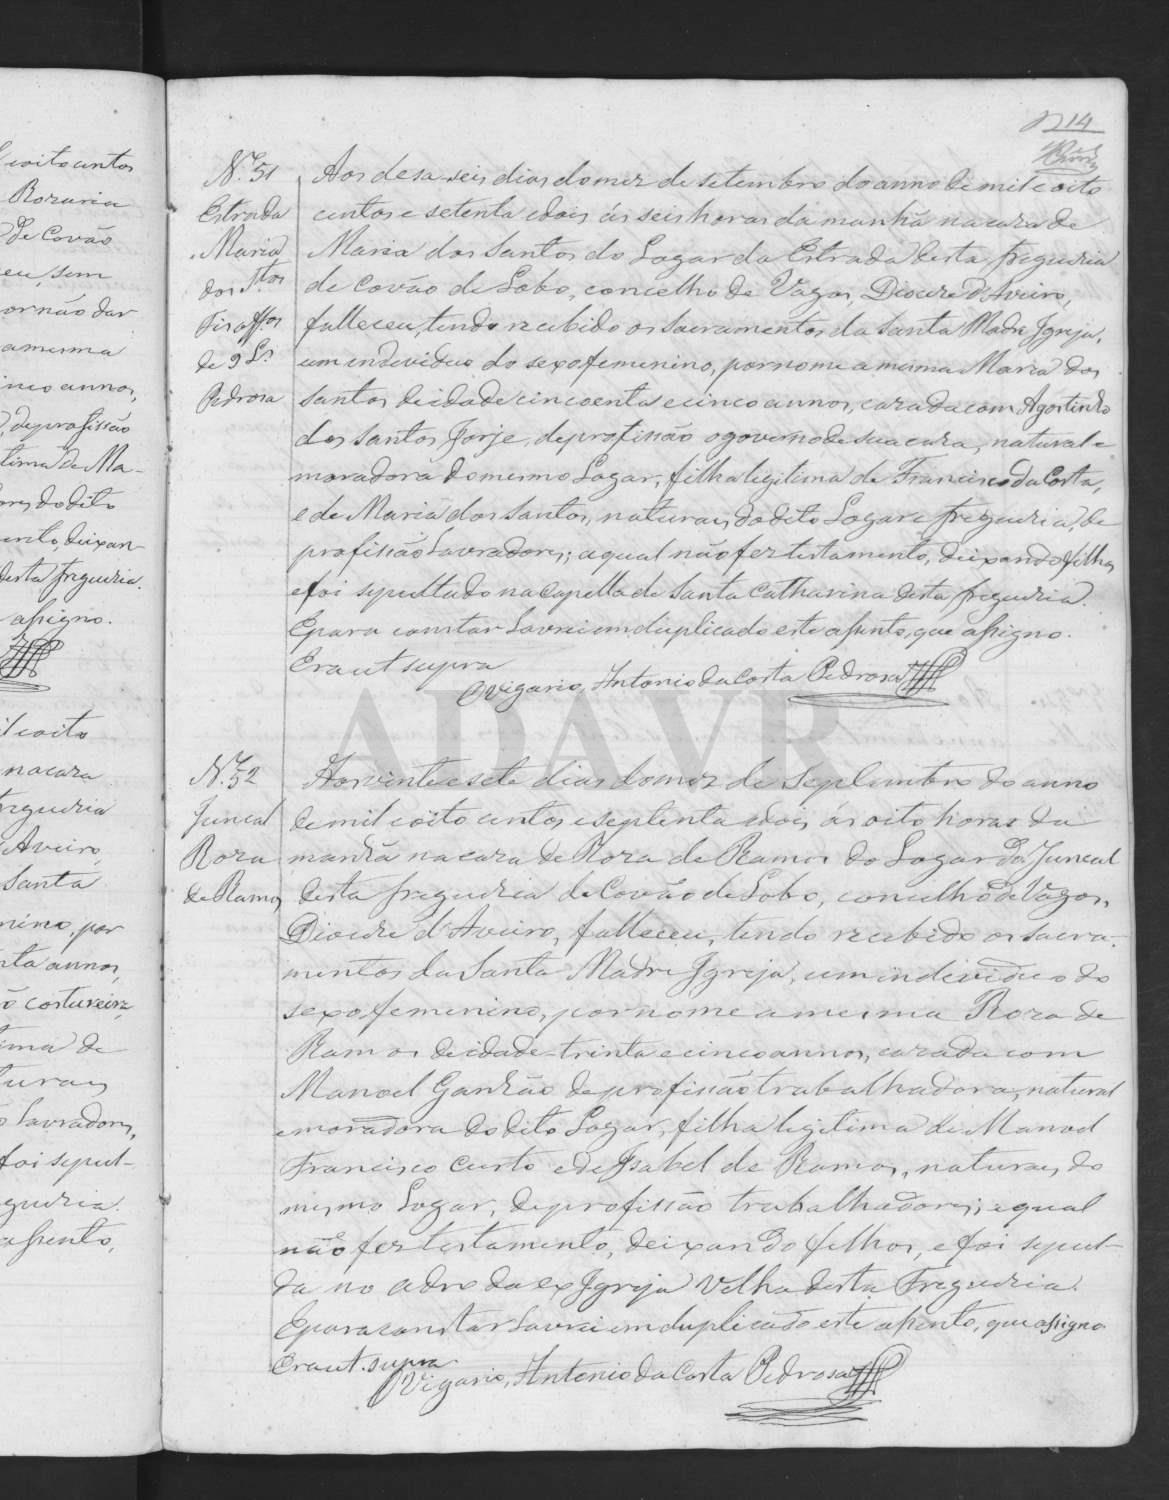 l e oito centos
Rozaria
de Covão
eu, sem
por não dar
a mesma
inco annos,
, de profissão
tima de Ma-
ores, do dito
ento, deixan-
desta freguezia.
assigno.
il e oito
na caza
freguezia
Aveiro,
Santa
nino, por
nta annos,
o costureira,
ima de
turaes
o Lavradores,
foi sepul-
guezia.
assento,
14
N.º 51
Estrada
Maria
dos S.tos
de 9 L.s
Pedrosa
Aos desaseis dias do mez de setembro do anno de mil e oito
centos e setenta e dois, ás seis horas da manhã na caza de
Maria dos Santos do Logar da Estrada desta freguezia
de Covão de Lobo, concelho de Vagos, Diocese d'Aveiro,
falleceu, tendo recebido os sacramentos da Santa Madre Igreja,
um endeviduo do sexo femenino, por nome a mesma Maria dos
Santos de idade cincoenta e cinco annos, cazada com Agostinho
dos Santos Jorje, de profissão o governo de sua caza, natural e
moradora do mesmo Logar, filha legitima de Francisco da Costa,
e de Maria dos Santos, naturaes do dito Logar e freguezia, de
profissão Lavradores; a qual não fez testamento, deixando filhos
e foi sepultado na Capella de Santa Catharina desta freguezia.
E para constar Lavrei em duplicado este assento, que assigno.
Era ut supra
O Vigario, Antonio da Costa Pedrosa
ADAVR
N.º 52
Juncal
Roza
de Ramos
Aos vinte e sete dias do mez de Septembro do anno
de mil e oito centos e septenta e dois, ás oito horas da
manhã na caza de Roza de Ramos do Logar do Juncal
desta freguezia de Covão de Lobo, concelho de Vagos,
Diocese d'Aveiro, falleceu, tendo recebido os sacra-
mentos da Santa Madre Igreja, um individuo do
sexo femenino, por nome a mesma Roza de
Ramos de idade trinta e cinco annos, cazada com
Manoel Ganhão de profissão trabalhadora, natural
e moradora do dito Logar, filha legitima de Manoel
Francisco Curto e de Isabel de Ramos, naturaes do
mesmo Logar, de profissão trabalhadores; a qual
não fez testamento, deixando filhos, e foi sepul-
da no adro da ex Igreja Velha desta Freguezia.
E para constar Lavrei em duplicado este assento, que assigno
Era ut supra
O Vigario, Antonio da Costa Pedrosa